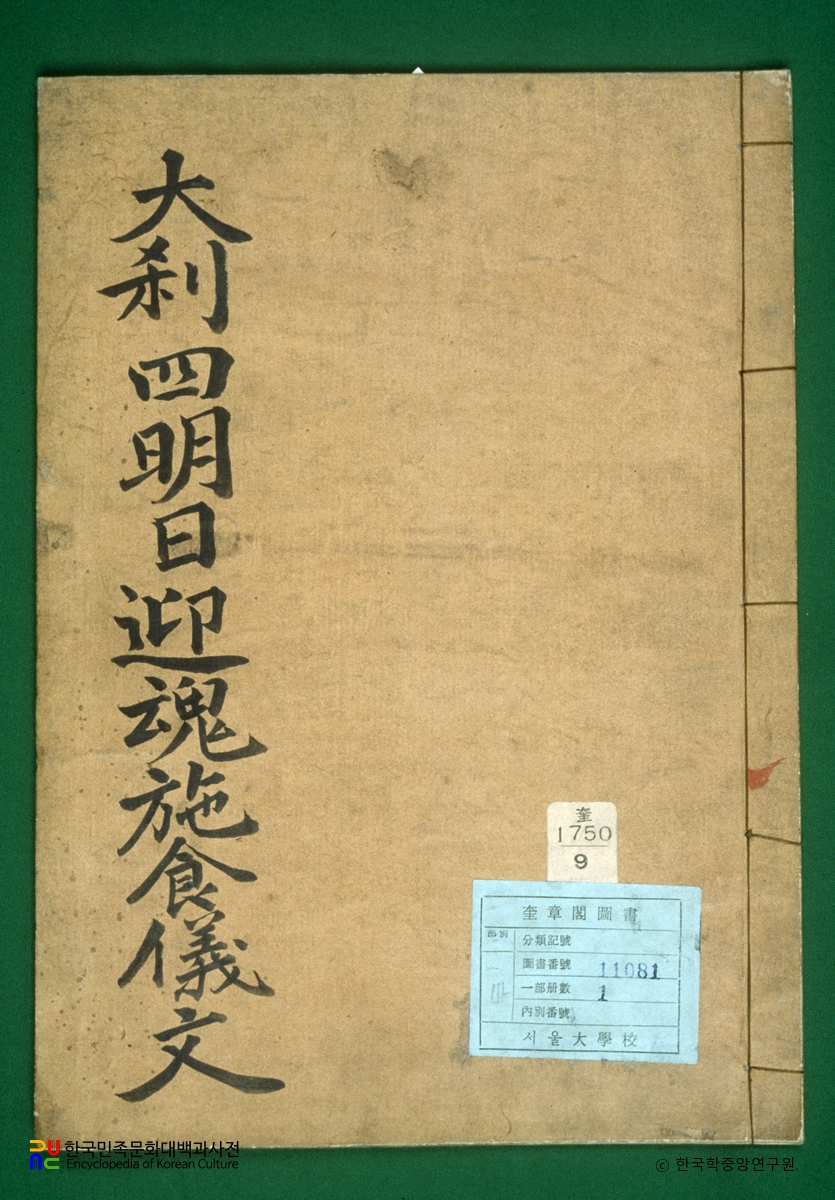 大刹四明日迎魂施食儀文
奎
1750
9
奎章閣圖書
部別
分類記號
圖書番號 11081
一部册數 1
內別番號
서울大學校
한국민족문화대백과사전
Encyclopedia of Korean Culture
ⓒ 한국학중앙연구원